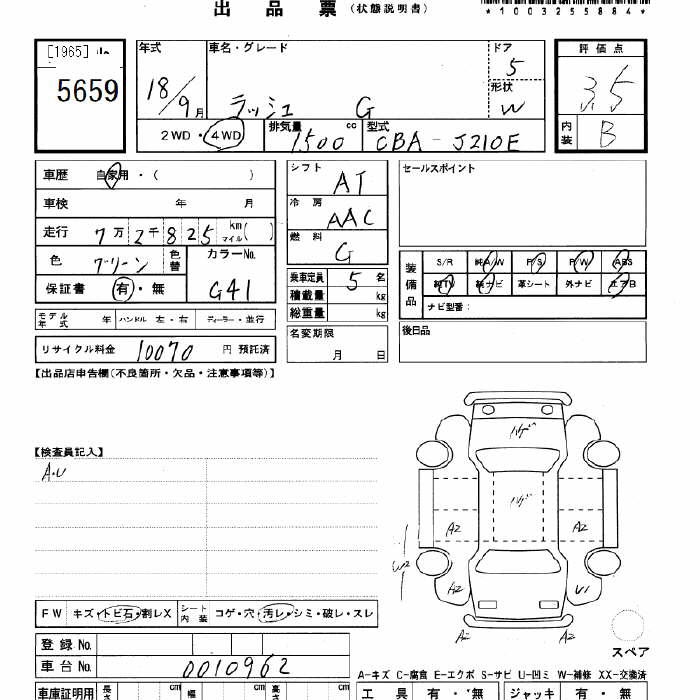 出品票（状態説明書）
*1003255884*
[1965]
5659
年式 18/9月
車名・グレード ラッシュ G
ドア 5
形状 W
評価点 3.5
内装 B
2WD・4WD
排気量 1500 cc
型式 CBA-J210E
車歴 自家用・( )
車検 年 月
走行 7万2千825 km マイル( )
色 グリーン 色替
カラーNo. G41
保証書 有・無
シフト AT
冷房 AAC
燃料 G
乗車定員 5 名
積載量 kg
総重量 kg
セールスポイント
装備品 S/R 純A/W P/S P/W ABS
純TV 純ナビ 革シート 外ナビ エアB
ナビ型番：
モデル年式 年 ハンドル 左・右 ディーラー・並行
名変期限 月 日
後日品
リサイクル料金 10070 円 預託済
【出品店申告欄(不良箇所・欠品・注意事項等)】
【検査員記入】
A.U
ハゲ
ハゲ
A2 A2
W2 A2 U1
A2 A2
スペア
FW キズ・トビ石・割レX シート内装 コゲ・穴・汚レ・シミ・破レ・スレ
登録No.
車台No. 0010962
A－キズ C－腐食 E－エクボ S－サビ U－凹ミ W－補修 XX－交換済
車庫証明用 長さ cm 幅 cm 高さ cm
工具 有・無 ジャッキ 有・無